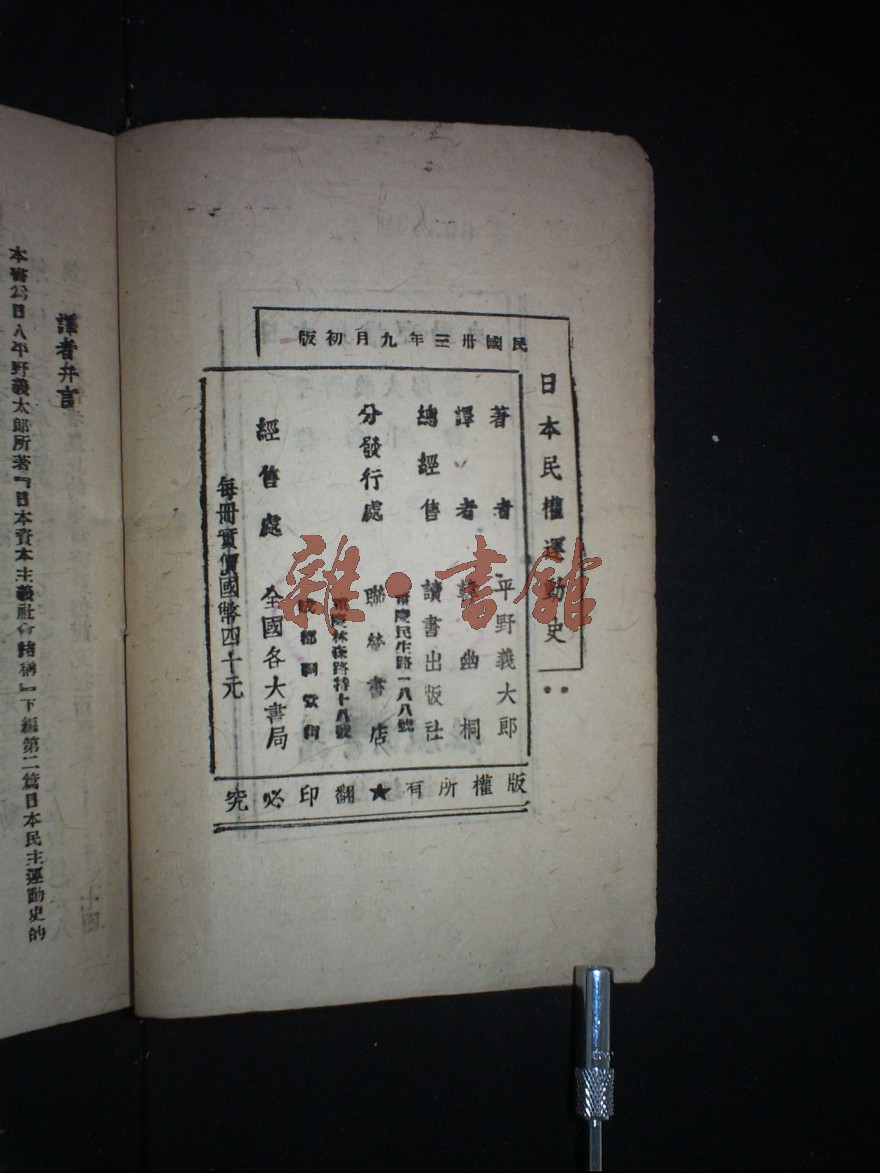 民國卅三年九月初版
日本民權運動史
著者 平野義太郎
譯者 韓幽桐
總經售 讀書出版社
重慶民生路一八八號
分發行處 聯營書店
重慶林森路特十八號
成都祠堂街
經售處 全國各大書局
每冊實價國幣四十元
版權所有★翻印必究
譯者弁言
本書為日人平野義太郎所著『日本資本主義社會機構』下編第二篇日本民主運動史的
雜·書館